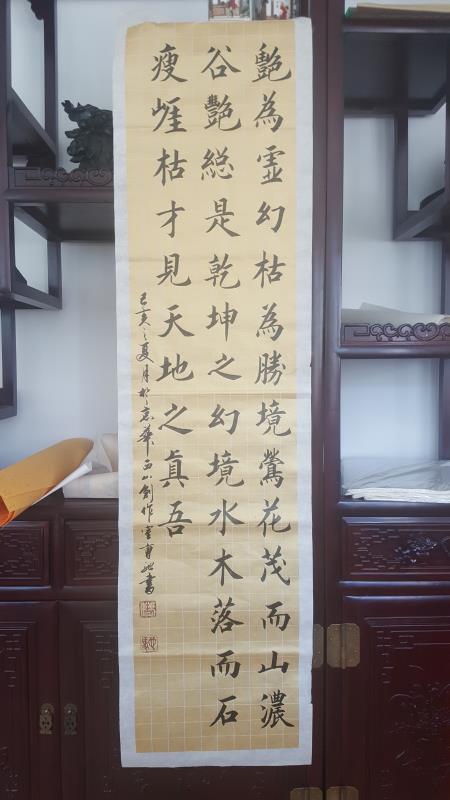 艷為虛幻枯為勝境鶯花茂而山濃
谷艷総是乾坤之幻境水木落而石
瘦崕枯才見天地之眞吾
己亥之夏月於京華西山創作室書